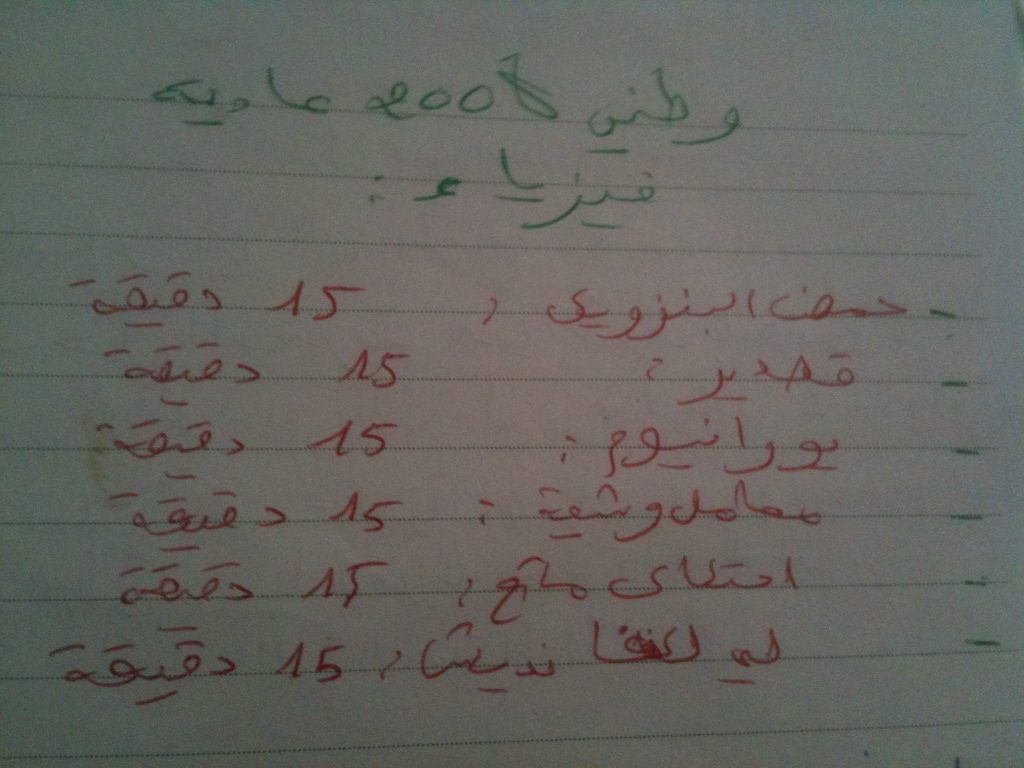 وطني 2008 عادية
فيزياء :
- حمض البنزويك : 15 دقيقة
- قصدير : 15 دقيقة
- يورانيوم : 15 دقيقة
- معامل وشيعة : 15 دقيقة
- احتكاك مائع : 15 دقيقة
- 15 دقيقة